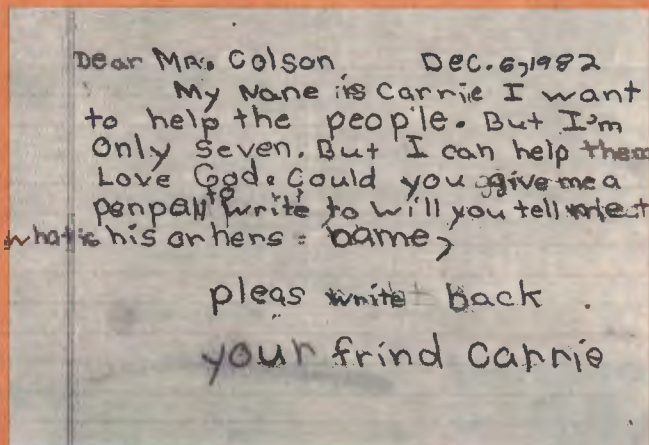 Dear Mr. Colson, Dec. 6, 1982
My Name is Carrie I want
to help the people. But I'm
Only Seven. But I can help them
Love God. Could you give me a
penpall to write to will you tell me
what is his or hers name,
pleas write back.
your frind Carrie